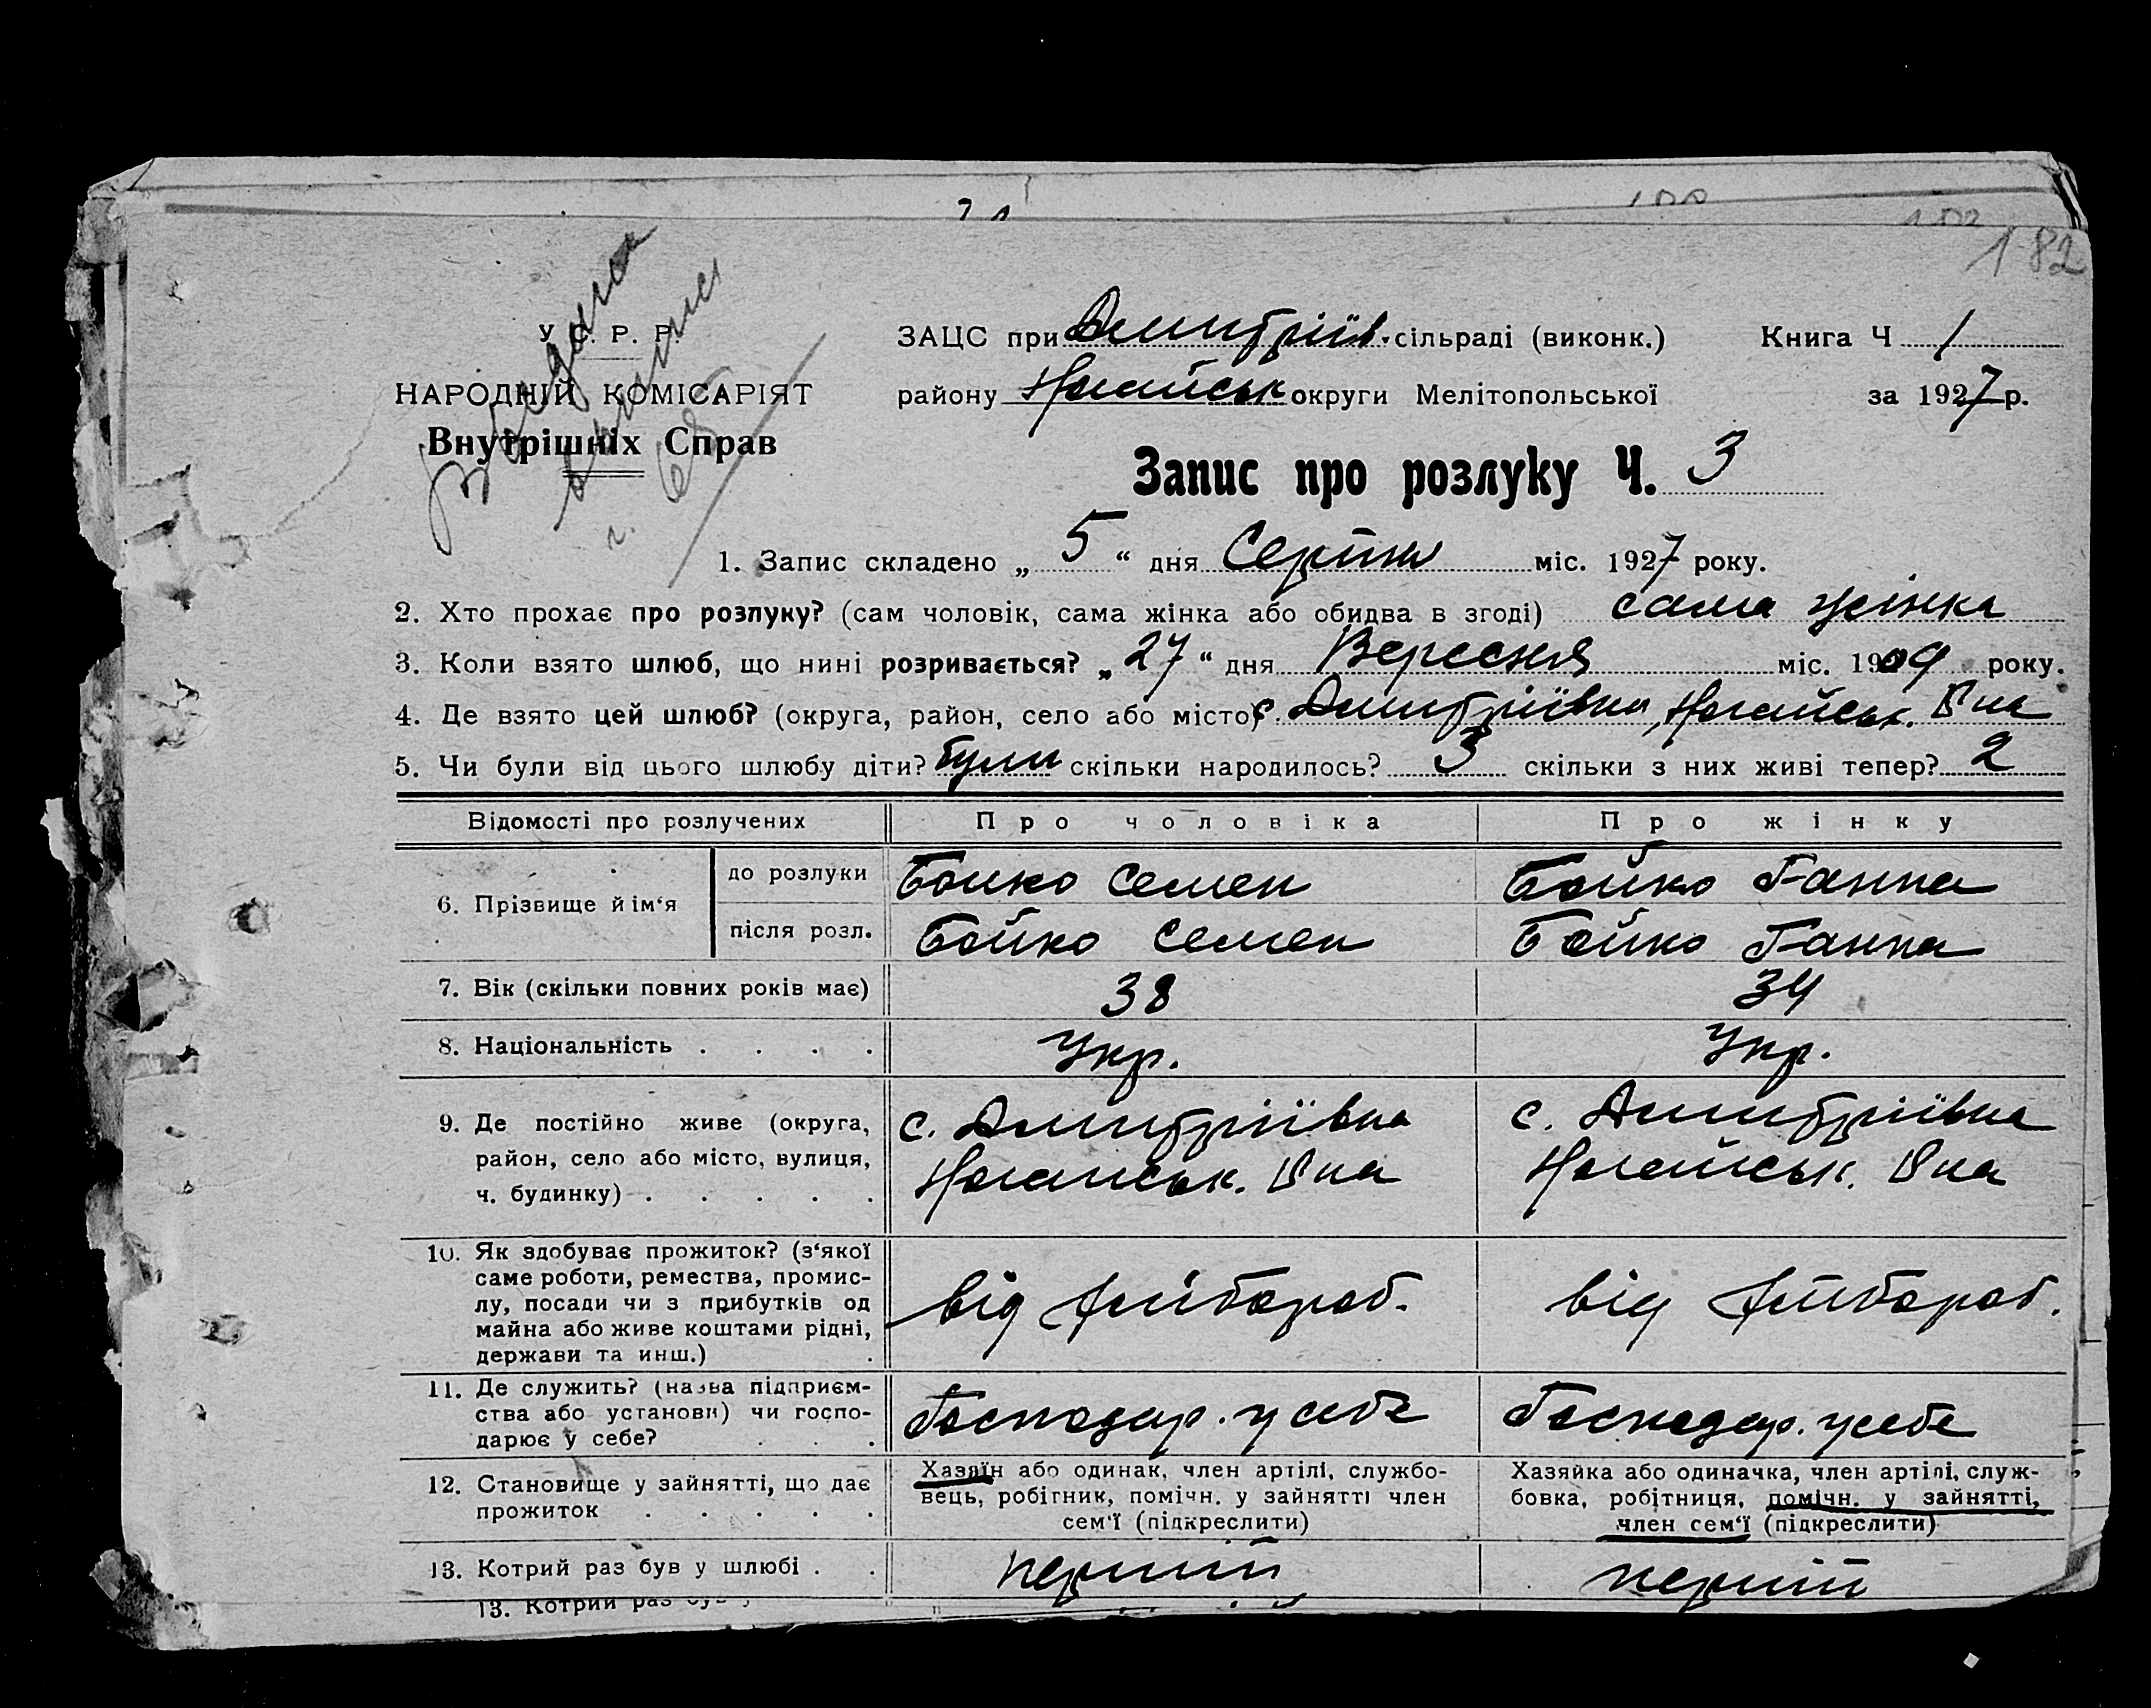 182
У. С. Р. Р.
НАРОДНІЙ КОМІСАРІЯТ
Внутрішніх Справ
ЗАЦС при Дмитріїв. сільраді (виконк.) Книга Ч 1
району Ногайськ округи Мелітопольської за 1927 р.
Запис про розлуку Ч. 3
1. Запис складено „ 5 “ дня Серпня міс. 1927 року.
2. Хто прохає про розлуку? (сам чоловік, сама жінка або обидва в згоді) сама жінка
3. Коли взято шлюб, що нині розривається? „ 27 “ дня Вересня міс. 1909 року.
4. Де взято цей шлюб? (округа, район, село або місто) с. Дмитріївка, Ногайськ. Р-на
5. Чи були від цього шлюбу діти? були скільки народилось? 3 скільки з них живі тепер? 2
Відомості про розлучених Про чоловіка Про жінку
6. Прізвище й ім‘я до розлуки Бойко Семен Бойко Ганна
після розл. Бойко Семен Бойко Ганна
7. Вік (скільки повних років має) 38 34
8. Національність . . . . Укр. Укр.
9. Де постійно живе (округа, район, село або місто, вулиця, ч. будинку) . . . . .
с. Дмитріївка
Ногайськ. Р-на
с. Дмитріївка
Ногайськ. Р-на
10. Як здобуває прожиток? (з‘якої
саме роботи, ремества, промис-
лу, посади чи з прибутків од
майна або живе коштами рідні,
держави та инш.) .
від хлібороб.
від хлібороб.
11. Де служить? (назва підприєм-
ства або установи) чи госпо-
дарює у себе? . . .
Господар. у себе
Господар. у себе
12. Становище у зайнятті, що дає
прожиток . . . . .
Хазяїн або одинак, член артілі, службо-
вець, робітник, помічн. у зайнятті член
сем‘ї (підкреслити)
Хазяйка або одиначка, член артілі, служ-
бовка, робітниця, помічн. у зайнятті,
член сем‘ї (підкреслити)
13. Котрий раз був у шлюбі . . перший перший
13. Котрий раз